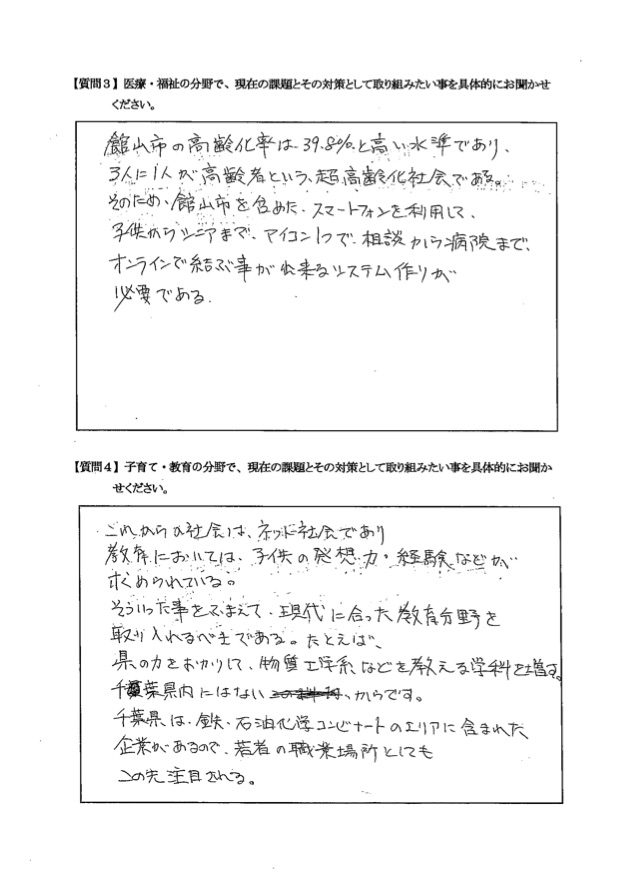 【質問３】医療・福祉の分野で、現在の課題とその対策として取り組みたい事を具体的にお聞かせ
ください。
館山市の高齢化率は39.8%と高い水準であり、
3人に1人が高齢者という、超高齢化社会である。
そのため、館山市を含めた、スマートフォンを利用して、
子供からシニアまで、アイコン1つで、相談から病院まで、
オンラインで結ぶ事が出来るシステム作りが
必要である。
【質問４】子育て・教育の分野で、現在の課題とその対策として取り組みたい事を具体的にお聞か
せください。
これからの社会は、ネット社会であり
教育においては、子供の発想力・経験などが
求められている。
そういった事をふまえて、現代に合った教育分野を
取り入れるべきである。たとえば、
県の力をおかりして、物質工学系などを教える学科を増す。
千葉県内にはない からです。
千葉県は、鉄・石油化学コンビナートのエリアに含まれた
企業があるので、若者の職業場所としても
この先注目される。